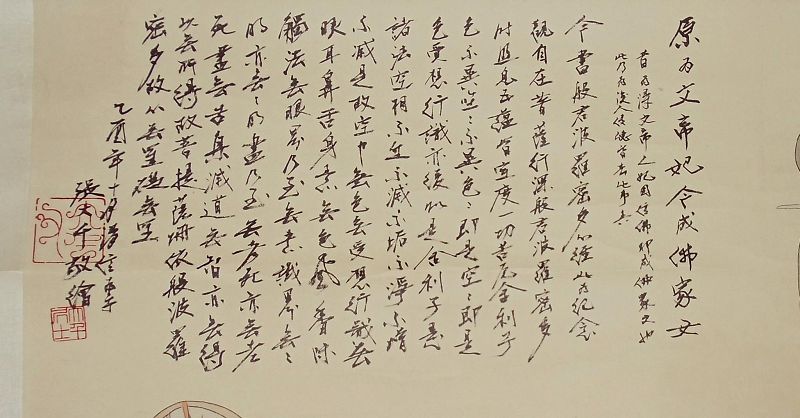 原为文帝妃今成佛家女
昔为汉文帝之妃因信佛即成佛家之女
此乃为後人传
今书般若波罗密多心经此为纪念
观自在菩萨行深般若波罗密多
时照见五蕴皆空度一切苦厄舍利子
色不異空〻不異色〻即是空〻即是
色受想行識亦復如是舍利子是
諸法空相不生不滅不垢不淨不增
不减是故空中無色無受想行識無
眼耳鼻舌身意無色聲香味
觸法無眼界乃至無意識界無〻
明亦無〻明盡乃至無老死亦無老
死盡無苦集滅道無智亦無得
以無所得故菩提薩埵依般波羅
密多故心無罣礙無罣
乙酉年十
張大千敬繪